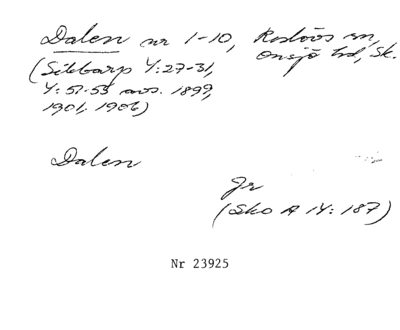 Dalen nr 1-10, Röstöös sn,
Onsjö hd, Sk.
(Sillbarp Y:27-31,
Y:51-55 avs. 1899,
1901, 1906)
Dalen
Jr
(Sko A 14: 187)
Nr 23925